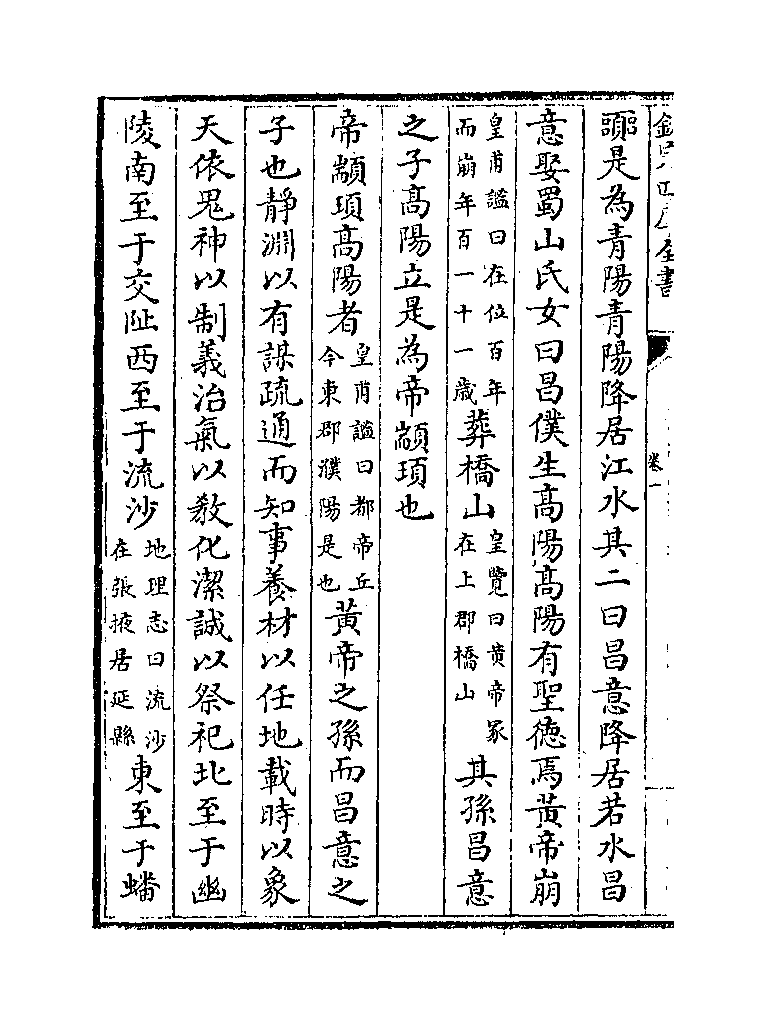 欽定四庫全書
卷一
囂是為青陽青陽降居江水其二曰昌意降居若水昌
意娶蜀山氏女曰昌僕生髙陽髙陽有聖徳焉黄帝崩
皇甫謐曰在位百年而崩年百一十一歳葬橋山皇覽曰黄帝冢在上郡橋山其孫昌意
之子髙陽立是為帝顓頊也
帝顓頊髙陽者皇甫謐曰都帝丘今東郡濮陽是也黄帝之孫而昌意之
子也靜淵以有謀疏通而知事養材以任地載時以象
天依鬼神以制義治氣以敎化潔誠以祭祀北至于幽
陵南至于交阯西至于流沙地理志曰流沙在張掖居延縣東至于蟠